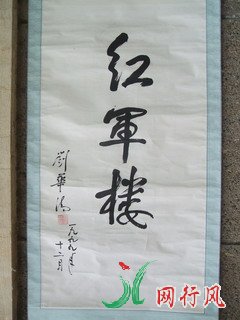 红軍楼
劉華清
一九九九年
十二月
网行风